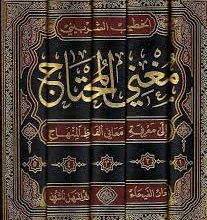 الخطيب الشربيني
مغني المحتاج
إلى معرفة معاني ألفاظ المنهاج
دار الفيحاء